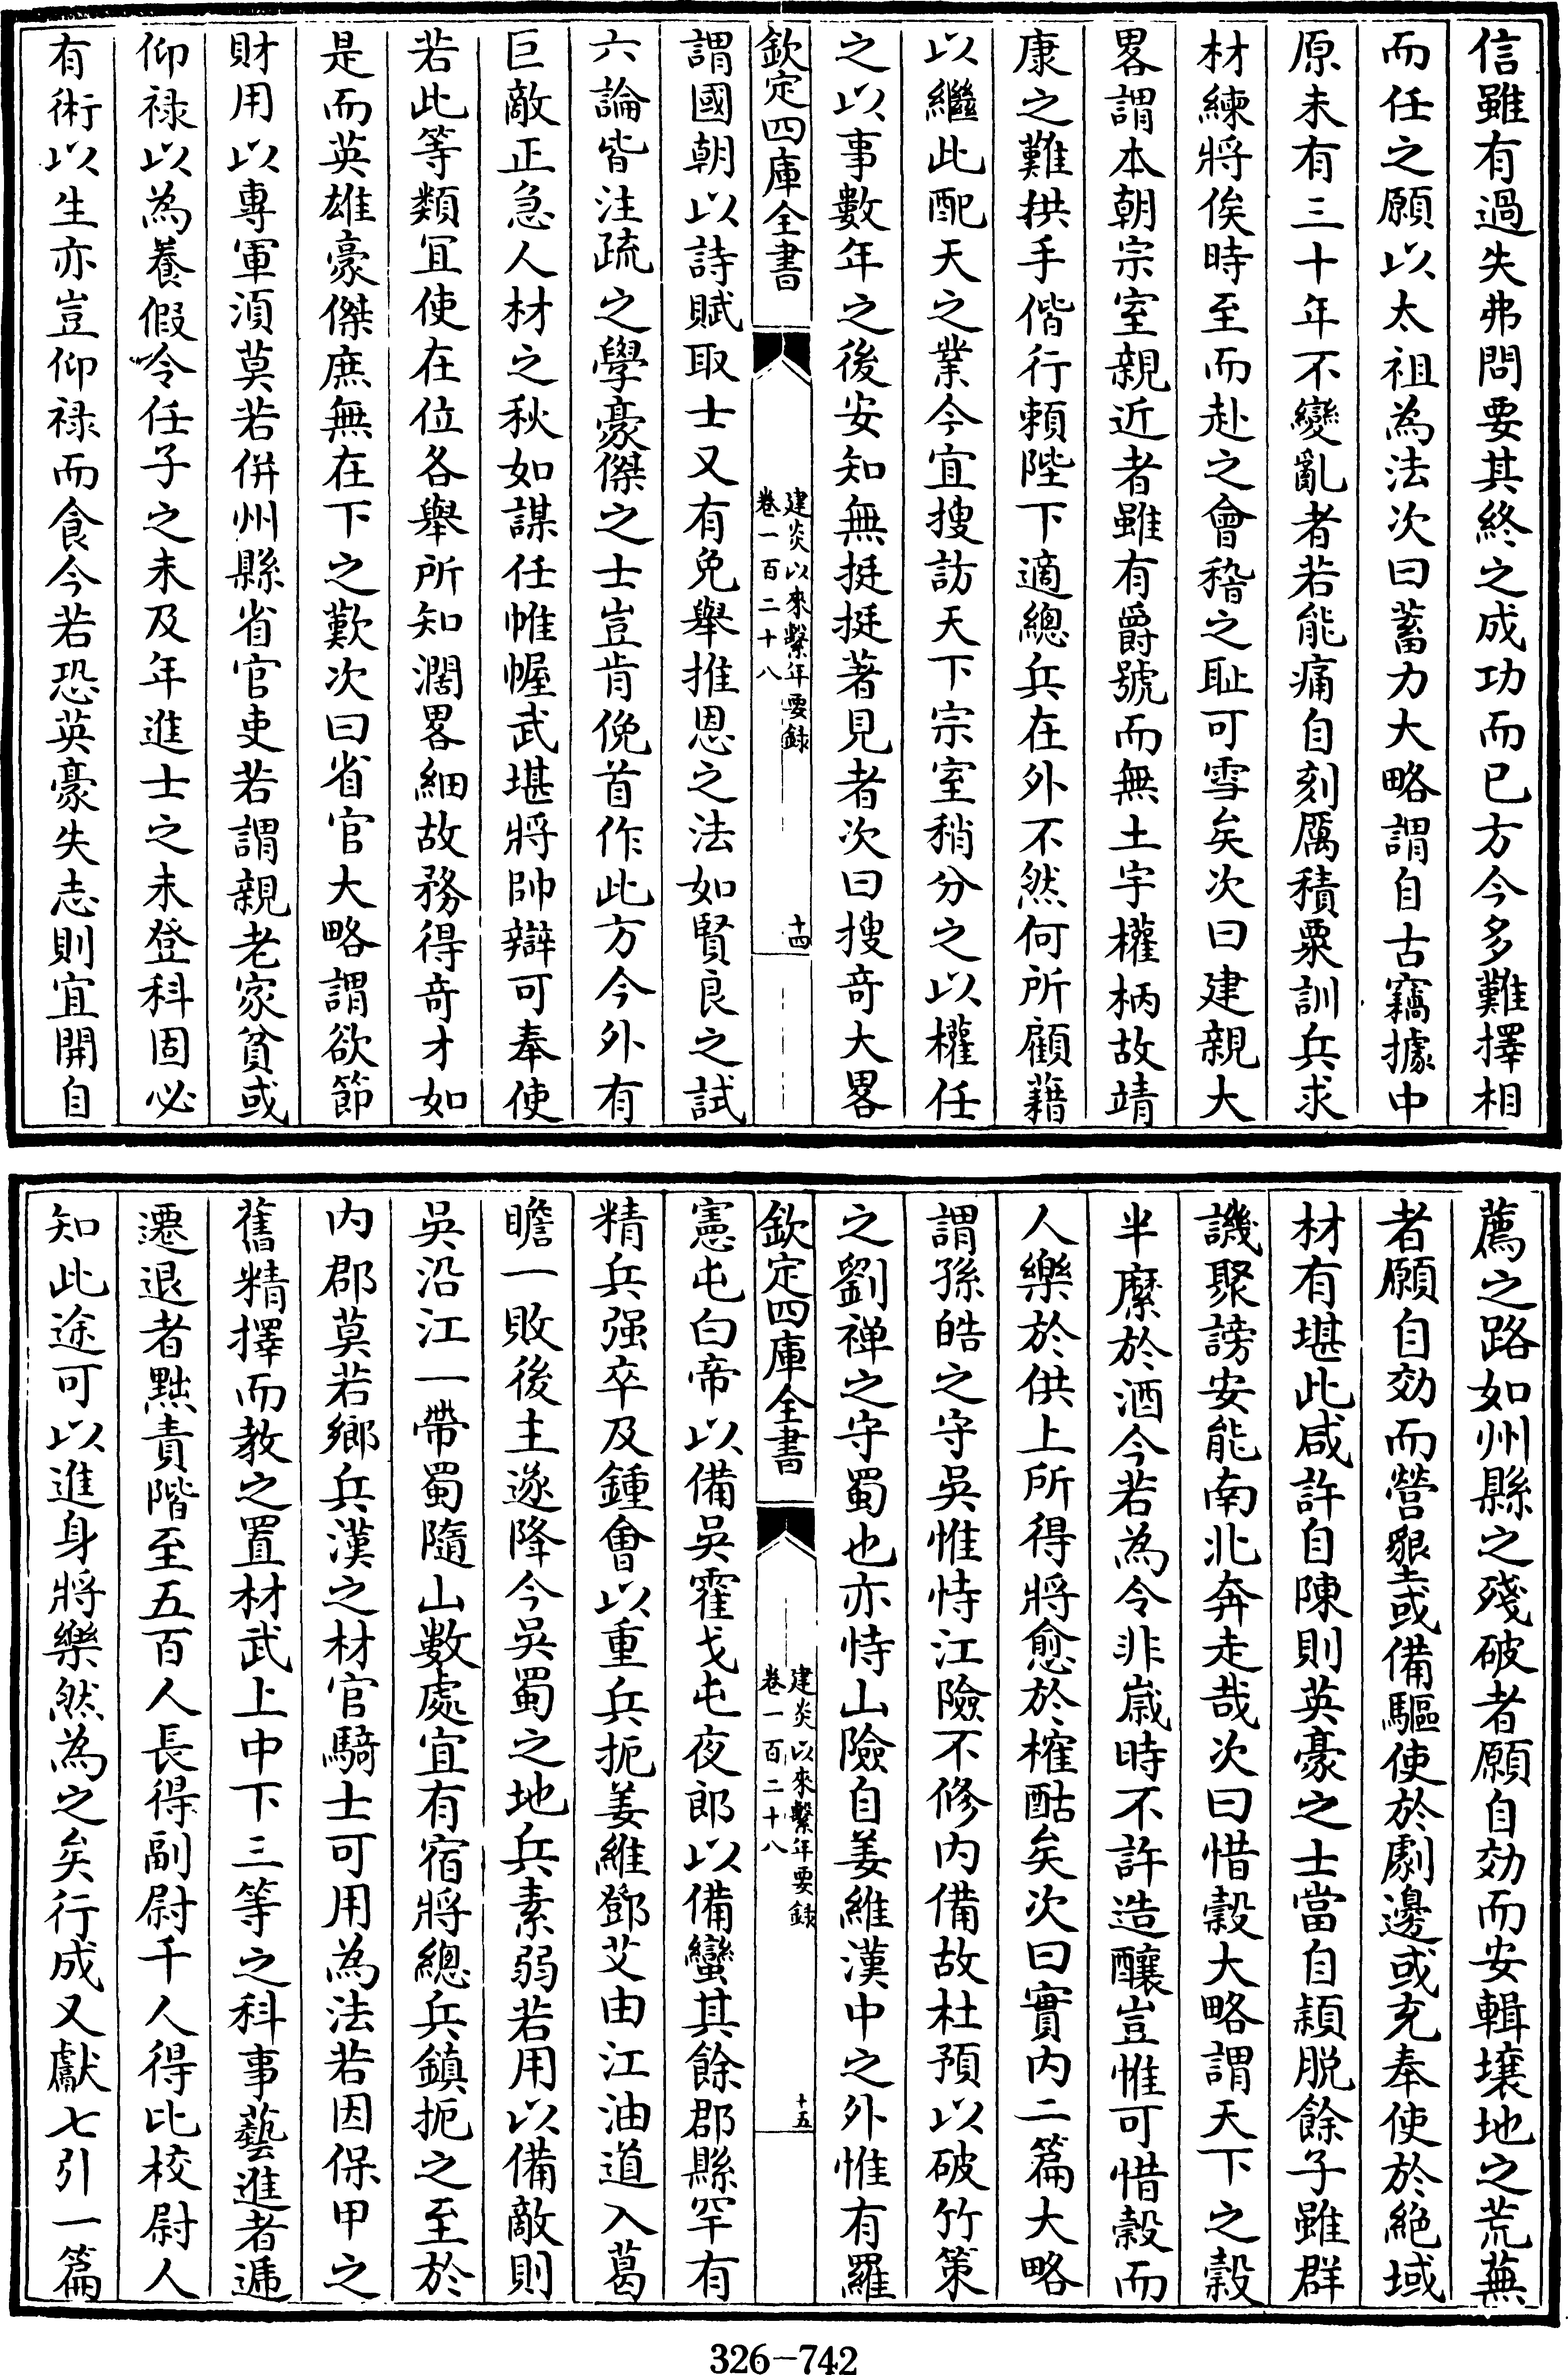 信雖有過失弗問要其終之成功而已方今多難擇相
而任之願以太祖為法次曰蓄力大略謂自古竊據中
原未有三十年不變亂者若能痛自刻厲積粟訓兵求
材練將俟時至而赴之會稽之耻可雪矣次曰建親大
畧謂本朝宗室親近者雖有爵號而無土宇權柄故靖
康之難拱手偕行賴陛下適總兵在外不然何所顧藉
以繼此配天之業今宜搜訪天下宗室稍分之以權任
之以事數年之後安知無挺挺著見者次曰搜奇大畧
欽定四庫全書
建炎以來繫年要錄
卷一百二十八
十四
謂國朝以詩賦取士又有免舉推恩之法如賢良之試
六論皆注疏之學豪傑之士豈肯俛首作此方今外有
巨敵正急人材之秋如謀任帷幄武堪將帥辯可奉使
若此等類宜使在位各舉所知濶畧細故務得奇才如
是而英雄豪傑庶無在下之歎次曰省官大略謂欲節
財用以專軍須莫若併州縣省官吏若謂親老家貧或
仰祿以為養假令任子之未及年進士之未登科固必
有術以生亦豈仰祿而食今若恐英豪失志則宜開自
薦之路如州縣之殘破者願自効而安輯壤地之荒蕪
者願自効而營墾或備驅使於劇邊或充奉使於絕域
材有堪此咸許自陳則英豪之士當自穎脱餘子雖群
譏聚謗安能南北奔走哉次曰惜穀大略謂天下之穀
半縻於酒今若為令非歲時不許造釀豈惟可惜穀而
人樂於供上所得將愈於榷酤矣次曰實內二篇大略
謂孫皓之守吳惟恃江險不修內備故杜預以破竹策
之劉禪之守蜀也亦恃山險自姜維漢中之外惟有羅
欽定四庫全書
建炎以來繫年要錄
卷一百二十八
十五
憲屯白帝以備吳霍弋屯夜郎以備蠻其餘郡縣罕有
精兵强卒及鍾會以重兵扼姜維鄧艾由江油道入葛
瞻一敗後主遂降今吳蜀之地兵素弱若用以備敵則
吳沿江一帶蜀隨山數處宜有宿將總兵鎮扼之至於
內郡莫若鄉兵漢之材官騎士可用為法若因保甲之
舊精擇而教之置材武上中下三等之科事藝進者遞
遷退者黜責階至五百人長得副尉千人得比校尉人
知此途可以進身將樂然為之矣行成又獻七引一篇
326-742